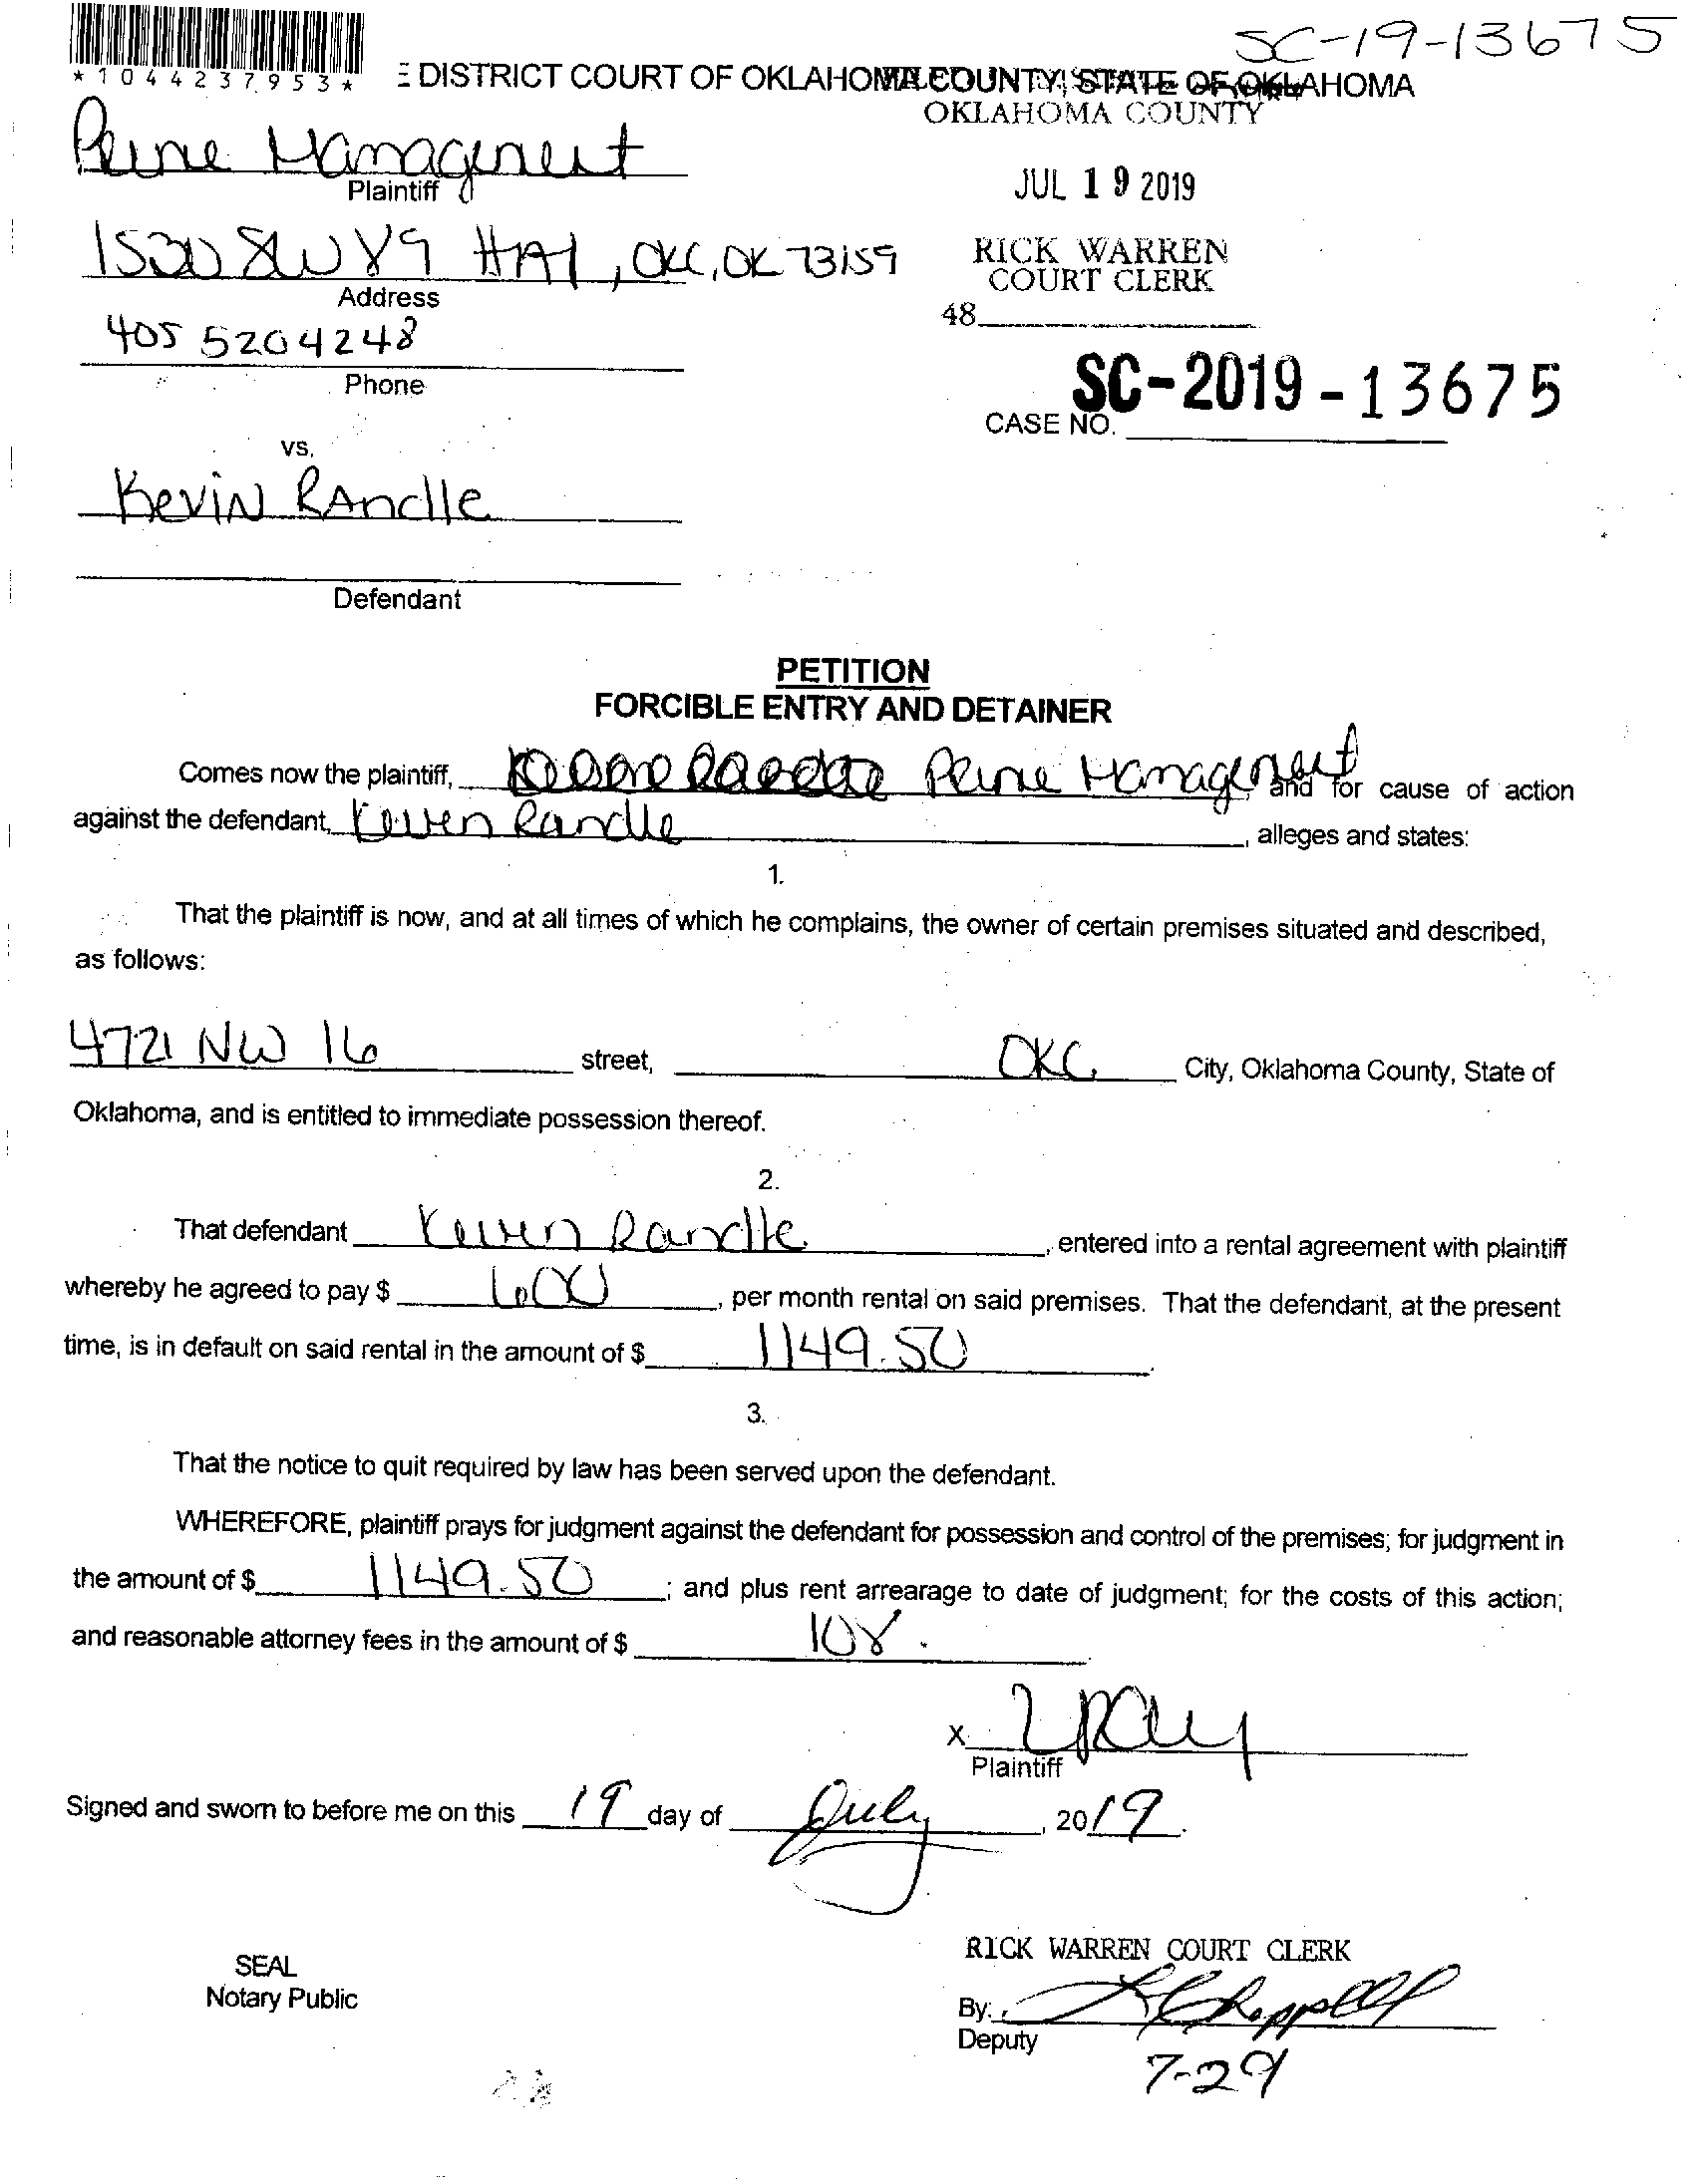 SC-19-13675
*1044237953*
E DISTRICT COURT OF OKLAHOMA COUNTY, STATE OF OKLAHOMA
OKLAHOMA COUNTY
Management
Plaintiff
JUL 19 2019
1530 SW 89 #A1, OKC, OK 73159
RICK WARREN
COURT CLERK
Address
48
405 5204248
Phone
SC-2019-13675
CASE NO.
vs.
Kevin Randle
Defendant
PETITION
FORCIBLE ENTRY AND DETAINER
Comes now the plaintiff, Management, and for cause of action
against the defendant, Randle, alleges and states:
1.
That the plaintiff is now, and at all times of which he complains, the owner of certain premises situated and described,
as follows:
4721 NW 16 street, OKC City, Oklahoma County, State of
Oklahoma, and is entitled to immediate possession thereof.
2.
That defendant Randle, entered into a rental agreement with plaintiff
whereby he agreed to pay $ 600, per month rental on said premises. That the defendant, at the present
time, is in default on said rental in the amount of $ 1149.50.
3.
That the notice to quit required by law has been served upon the defendant.
WHEREFORE, plaintiff prays for judgment against the defendant for possession and control of the premises; for judgment in
the amount of $ 1149.50; and plus rent arrearage to date of judgment; for the costs of this action;
and reasonable attorney fees in the amount of $ 108.
X
Plaintiff
Signed and sworn to before me on this 19 day of July, 2019.
RICK WARREN COURT CLERK
SEAL
Notary Public
By:
Deputy
7-29